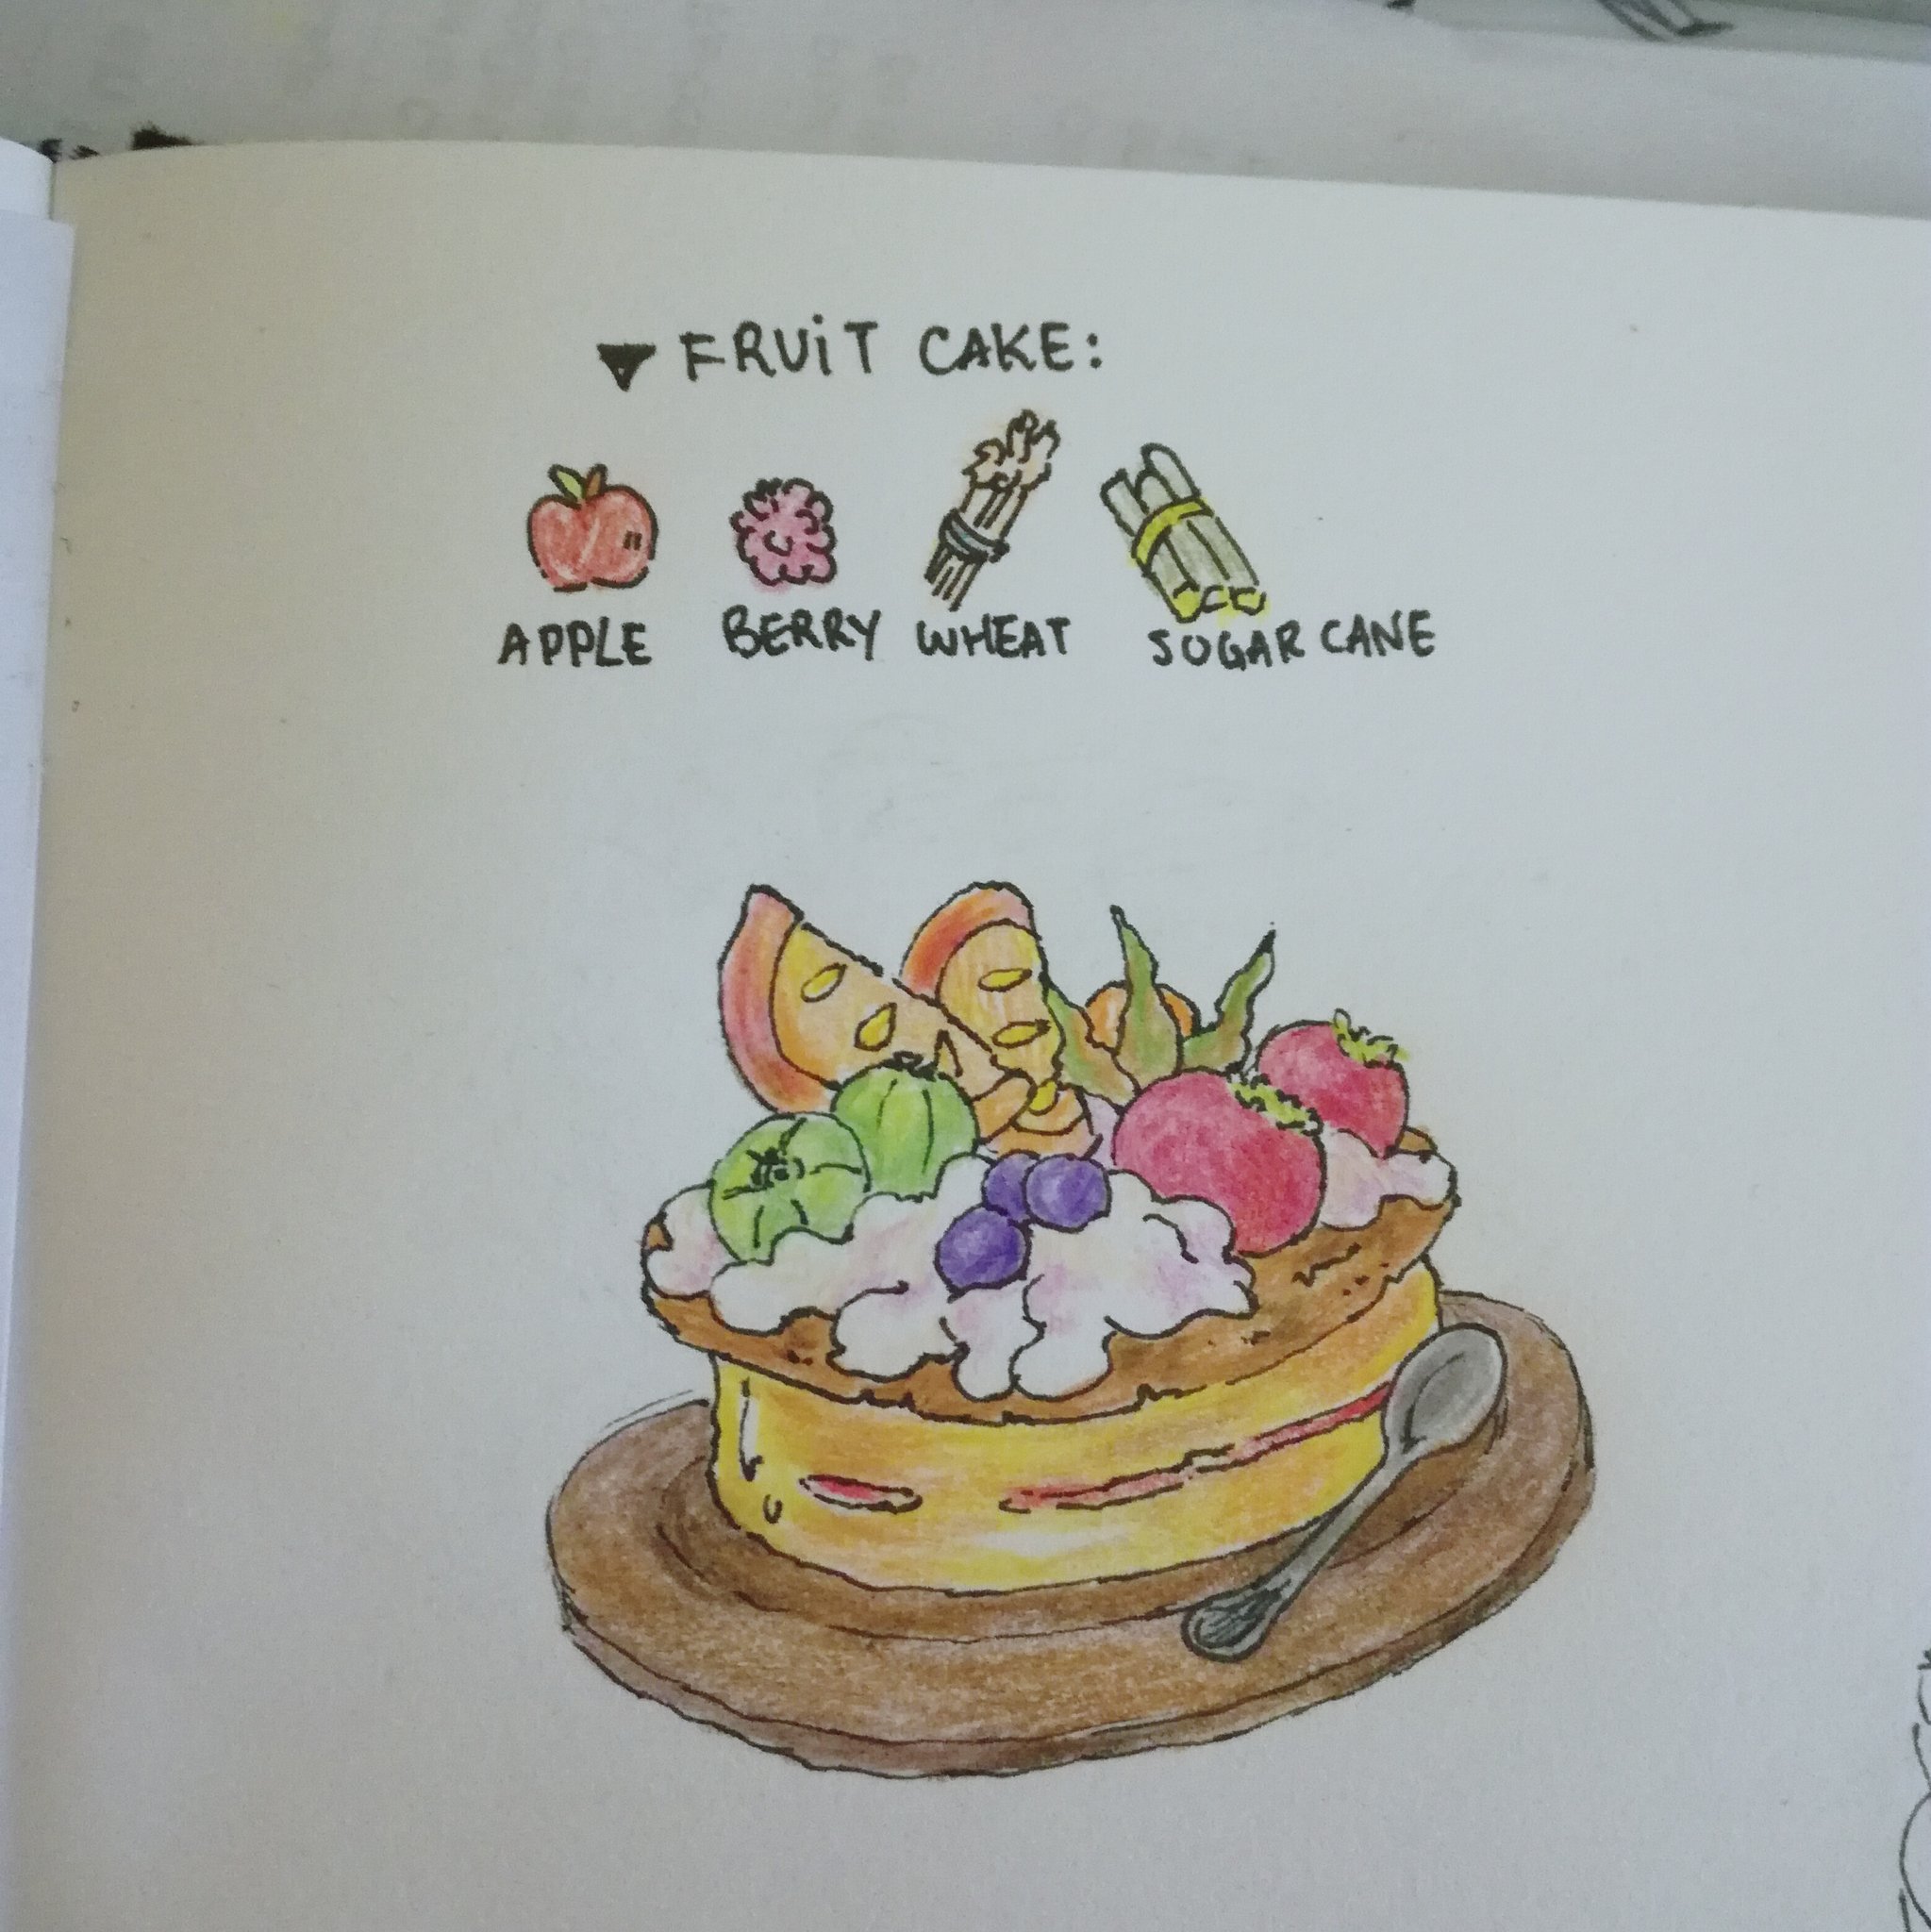 FRUiT CAKE:
APPLE BERRY WHEAT SUGAR CANE